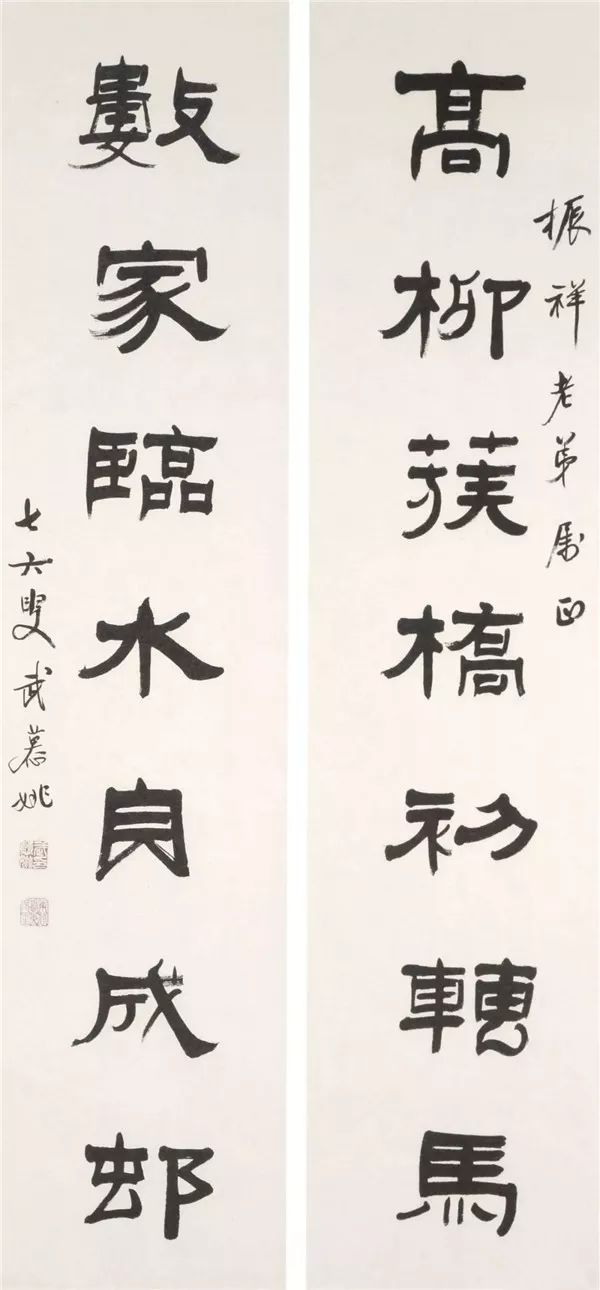 振祥老弟属正
高柳蔟橋初轉馬
數家臨水自成邨
七六叟武慕姚